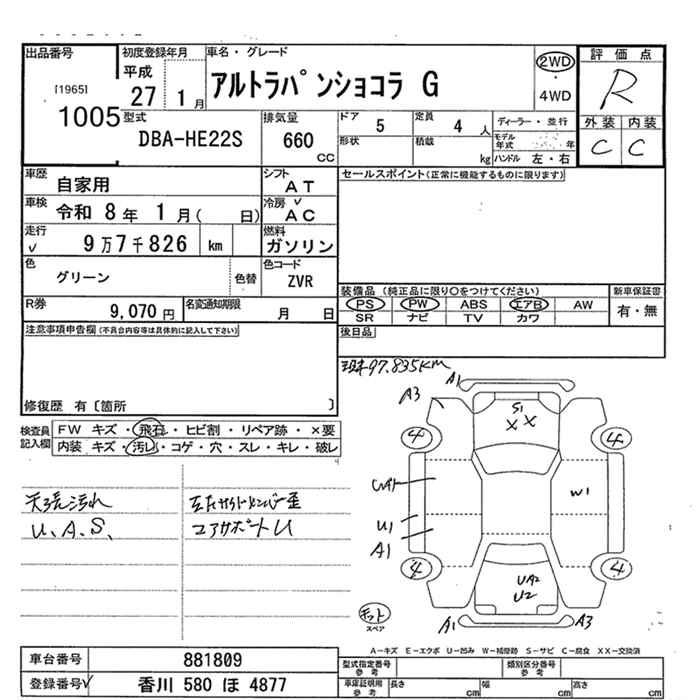 出品番号
[1965]
1005
初度登録年月
平成
27 1月
車名・グレード
アルトラパンショコラ G
2WD
・
4WD
評価点
R
外装 内装
C C
型式
DBA-HE22S
排気量
660
cc
ドア
5
定員
4 人
形状
積載
kg
ディーラー・並行
モデル
年式 年
ハンドル 左・右
車歴
自家用
シフト
AT
車検
令和 8年 1月( 日)
冷房 ✓
AC
走行
✓ 9万7千826 km
燃料
ガソリン
色
グリーン
色替
色コード
ZVR
R券
9,070円
名変通知期限
月 日
セールスポイント(正常に機能するものに限ります)
装備品 (純正品に限り○をつけてください)
PS PW ABS エアB AW
SR ナビ TV カワ
新車保証書
有・無
後日品
注意事項申告欄(不具合内容等は具体的に記入して下さい)
修復歴 有〔箇所 〕
現車97,835KM
検査員
記入欄
FW キズ・飛石・ヒビ割・リペア跡・×要
内装 キズ・汚レ・コゲ・穴・スレ・キレ・破レ
天張汚れ
U、A、S、
左右サイドメンバー歪
コアサポートU
A1
A3
S1
X X
4
4
W1
U1
A1
4
4
UA2
U2
A1
A3
キット
スペア
A-キズ E-エクボ U-凹み W-補修跡 S-サビ C-腐食 XX-交換済
車台番号
881809
登録番号✓
香川 580 ほ 4877
型式指定番号
参考
類別区分番号
参考
車庫証明用
参考
長さ cm
幅 cm
高さ cm